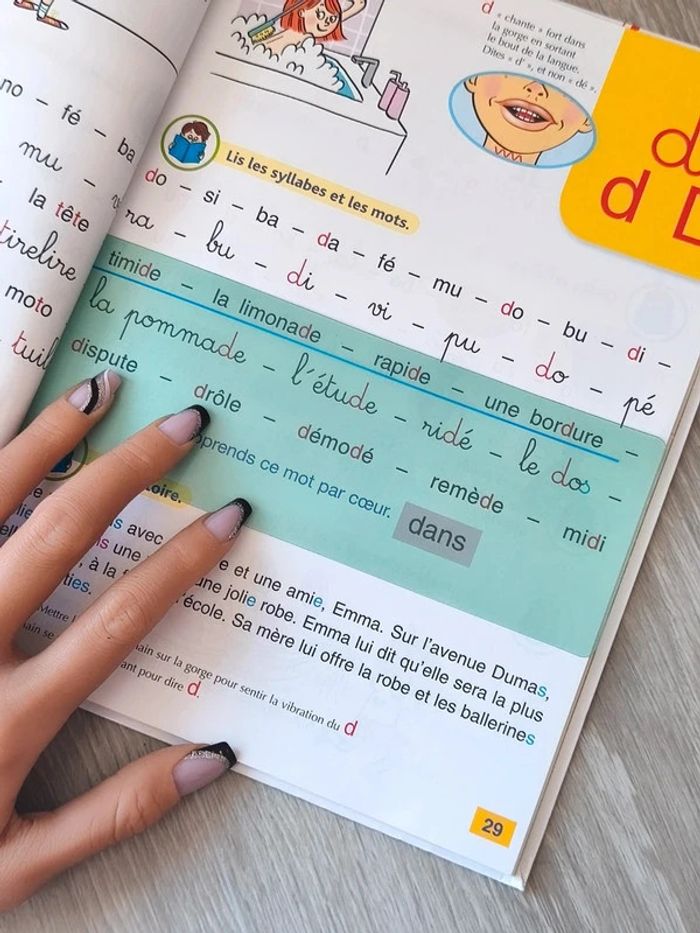 no – fé – ba
mu –
la tête
tirelire
moto
d « chante » fort dans
la gorge en sortant
le bout de la langue.
Dites « d' », et non « dé ».
d
d
Lis les syllabes et les mots.
do – si – ba – da – fé – mu – do – bu – di –
ra – bu – di – vi – pu – do – pé
timide – la limonade – rapide – une bordure –
la pommade – l'étude – ridé – le dos –
dispute – drôle – démodé – remède – midi
ce mot par cœur. dans
avec et une amie, Emma. Sur l'avenue Dumas,
une jolie robe. Emma lui dit qu'elle sera la plus
à la l'école. Sa mère lui offre la robe et les ballerines
sur la gorge pour sentir la vibration du d
pour dire d.
29